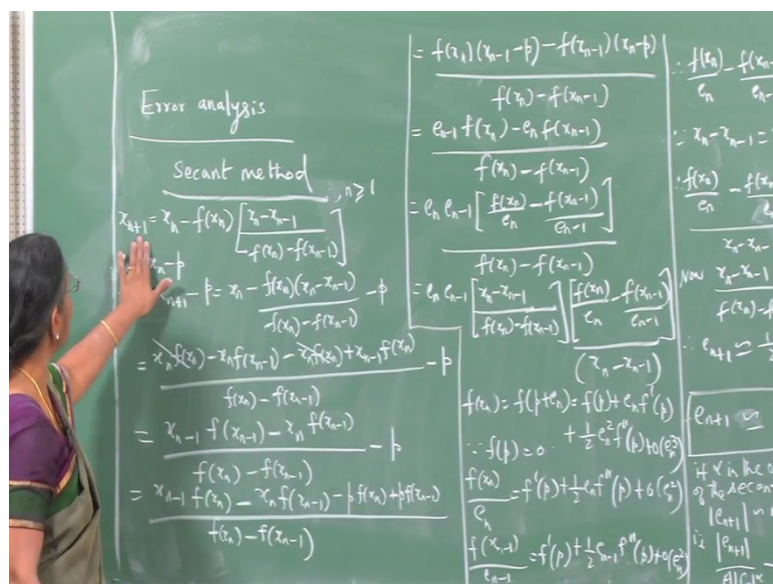 Error analysis
Secant method
x_{n+1} = x_n - f(x_n) [ (x_n - x_{n-1}) / (f(x_n) - f(x_{n-1})) ] , n ≥ 1
x_n - p
x_{n+1} - p = x_n - f(x_n)(x_n - x_{n-1}) / (f(x_n) - f(x_{n-1})) - p
= (x_n f(x_n) - x_n f(x_{n-1}) - x_n f(x_n) + x_{n-1} f(x_n)) / (f(x_n) - f(x_{n-1})) - p
= (x_{n-1} f(x_{n-1}) - x_n f(x_{n-1})) / (f(x_n) - f(x_{n-1})) - p
= (x_{n-1} f(x_n) - x_n f(x_{n-1}) - p f(x_n) + p f(x_{n-1})) / (f(x_n) - f(x_{n-1}))
= (f(x_n)(x_{n-1} - p) - f(x_{n-1})(x_n - p)) / (f(x_n) - f(x_{n-1}))
= (e_{n-1} f(x_n) - e_n f(x_{n-1})) / (f(x_n) - f(x_{n-1}))
= e_n e_{n-1} [ f(x_n)/e_n - f(x_{n-1})/e_{n-1} ] / (f(x_n) - f(x_{n-1}))
= e_n e_{n-1} [ (x_n - x_{n-1}) / (f(x_n) - f(x_{n-1})) ] [ f(x_n)/e_n - f(x_{n-1})/e_{n-1} ] / (x_n - x_{n-1})
f(x_n) = f(p + e_n) = f(p) + e_n f'(p)
∵ f(p) = 0 + 1/2 e_n^2 f''(p) + O(e_n^3)
f(x_n)/e_n = f'(p) + 1/2 e_n f''(p) + O(e_n^2)
f(x_{n-1})/e_{n-1} = f'(p) + 1/2 e_{n-1} f''(p) + O(e_n^2)
∴ f(x_n)/e_n - f(x_n-
∵ x_n - x_{n-1} =
∴ f(x_n)/e_n - f(x_n
x_n - x_n-
Now x_n - x_{n-1}
f(x_n) - f(
∴ e_{n+1} ≈ 1/2
e_{n+1} ≈
if α is the o
of the secan
|e_{n+1}| ~
i.e. |e_{n+1}|